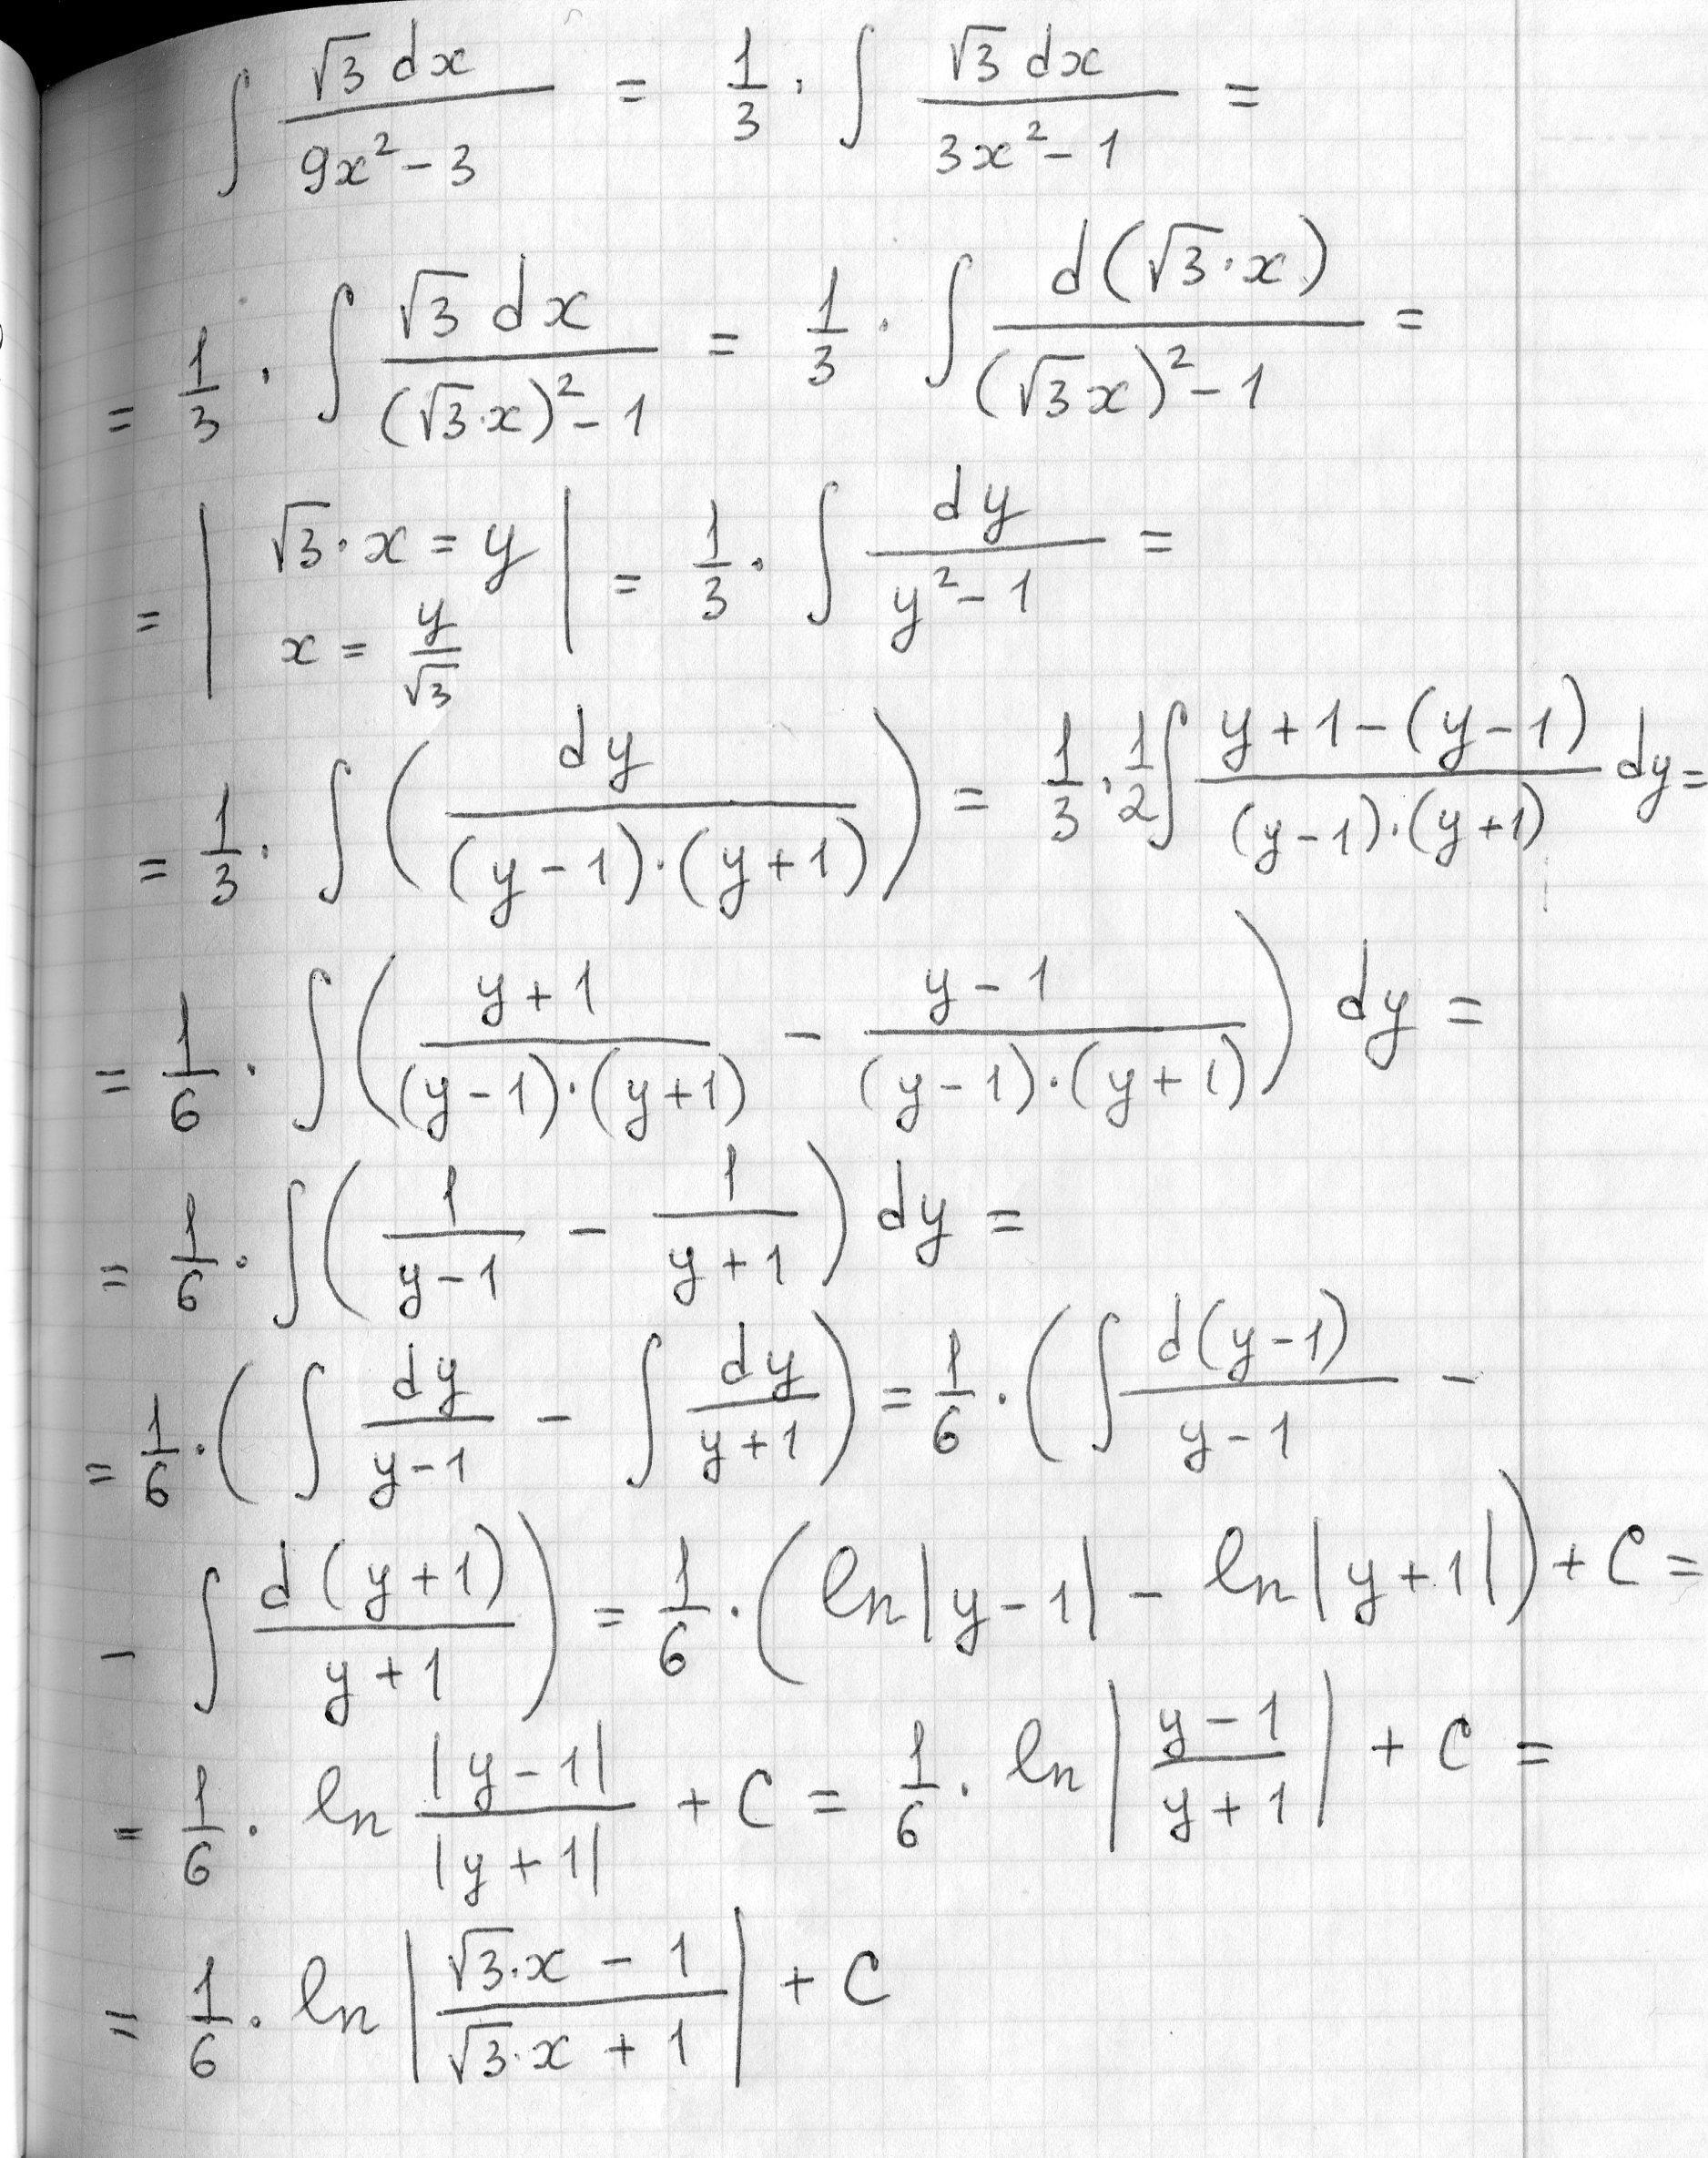 ∫ √3 dx / (9x² - 3) = 1/3 · ∫ √3 dx / (3x² - 1) =
= 1/3 · ∫ √3 dx / ((√3·x)² - 1) = 1/3 · ∫ d(√3·x) / ((√3x)² - 1) =
= | √3·x = y, x = y/√3 | = 1/3 · ∫ dy / (y² - 1) =
= 1/3 · ∫ (dy / ((y-1)·(y+1))) = 1/3 · 1/2 ∫ (y+1-(y-1)) / ((y-1)·(y+1)) dy =
= 1/6 · ∫ ((y+1) / ((y-1)·(y+1)) - (y-1) / ((y-1)·(y+1))) dy =
= 1/6 · ∫ (1/(y-1) - 1/(y+1)) dy =
= 1/6 · (∫ dy/(y-1) - ∫ dy/(y+1)) = 1/6 · (∫ d(y-1)/(y-1) -
- ∫ d(y+1)/(y+1)) = 1/6 · (ln|y-1| - ln|y+1|) + C =
= 1/6 · ln |y-1|/|y+1| + C = 1/6 · ln |(y-1)/(y+1)| + C =
= 1/6 · ln |(√3·x - 1)/(√3·x + 1)| + C